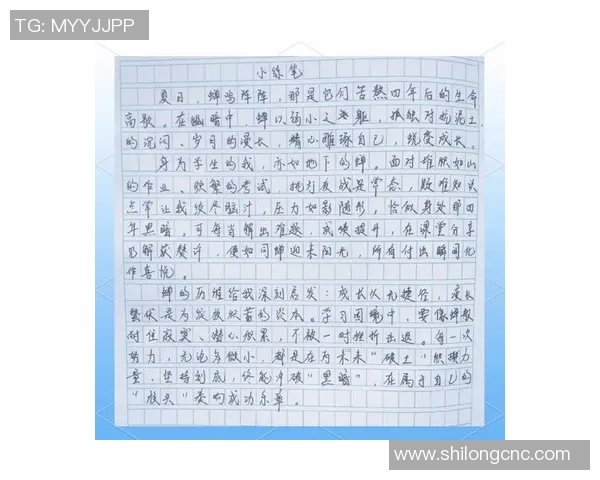 TG: MYYJJPP
小练笔
夏日，蝉鸣阵阵，那是它们苦熬四年后的生命
高歌。在幽暗中，蝉以弱小之躯，孤独对抗泥土
的沉闷、岁月的漫长，精心雕琢自己，蜕变成长。
身为学生的我，亦如地下的蝉。面对堆积如山
的作业、频繁的考试，挑灯夜战是常态，疑难知识
点常让我绞尽脑汁，压力如影随形，恰似身处那四
年黑暗。可每当解出难题，成绩提升，在课堂分享
见解获赞许，便如同蝉迎来阳光，所有付出瞬间化
作喜悦。
蝉的历程给我深刻启发：成长从无捷径，漫长
蛰伏是为发致积蓄的资本。学习困境中，要像蝉般
耐住寂寞、潜心积累，不被一时挫折击退。每一次
努力，无论多微小，都是在为未来"破土"积攒力
量，坚持到底，终能冲破"黑暗"，在属于自己的
"枝头"奏响成功乐章。
www.shilongcnc.com